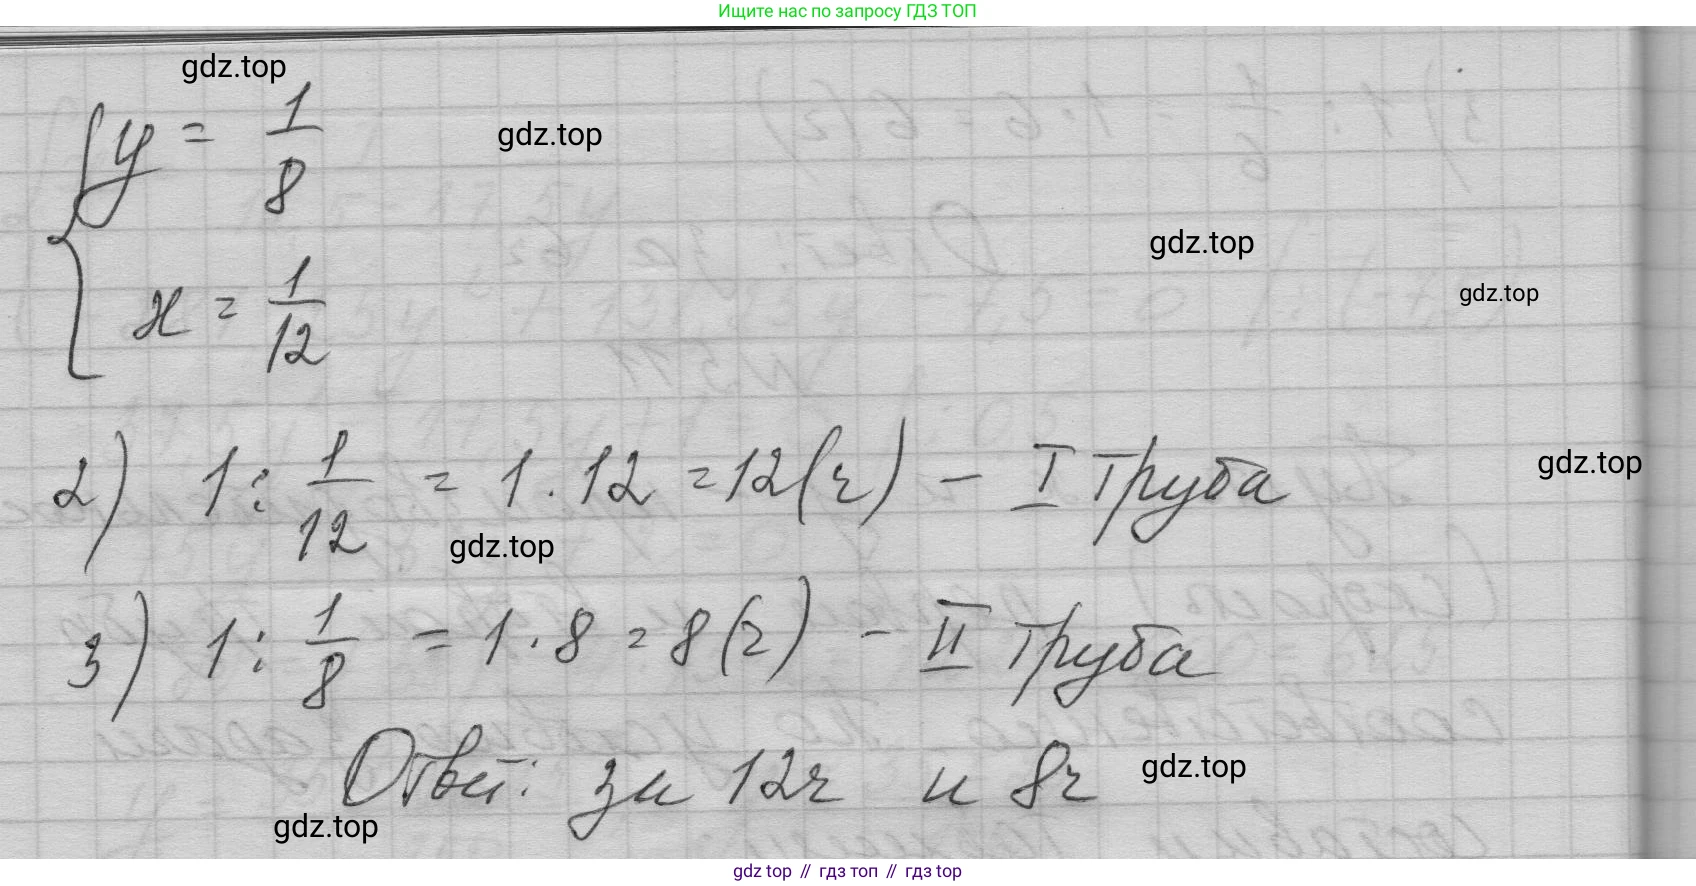 Ищите нас по запросу ГДЗ ТОП
gdz.top
y = 1/8
gdz.top
gdz.top
x = 1/12
gdz.top
2) 1 : 1/12 = 1 · 12 = 12 (ч) – I труба
gdz.top
gdz.top
3) 1 : 1/8 = 1 · 8 = 8 (ч) – II труба
Ответ: за 12ч и 8ч
gdz.top
gdz.top
gdz top // гдз топ // гдз top